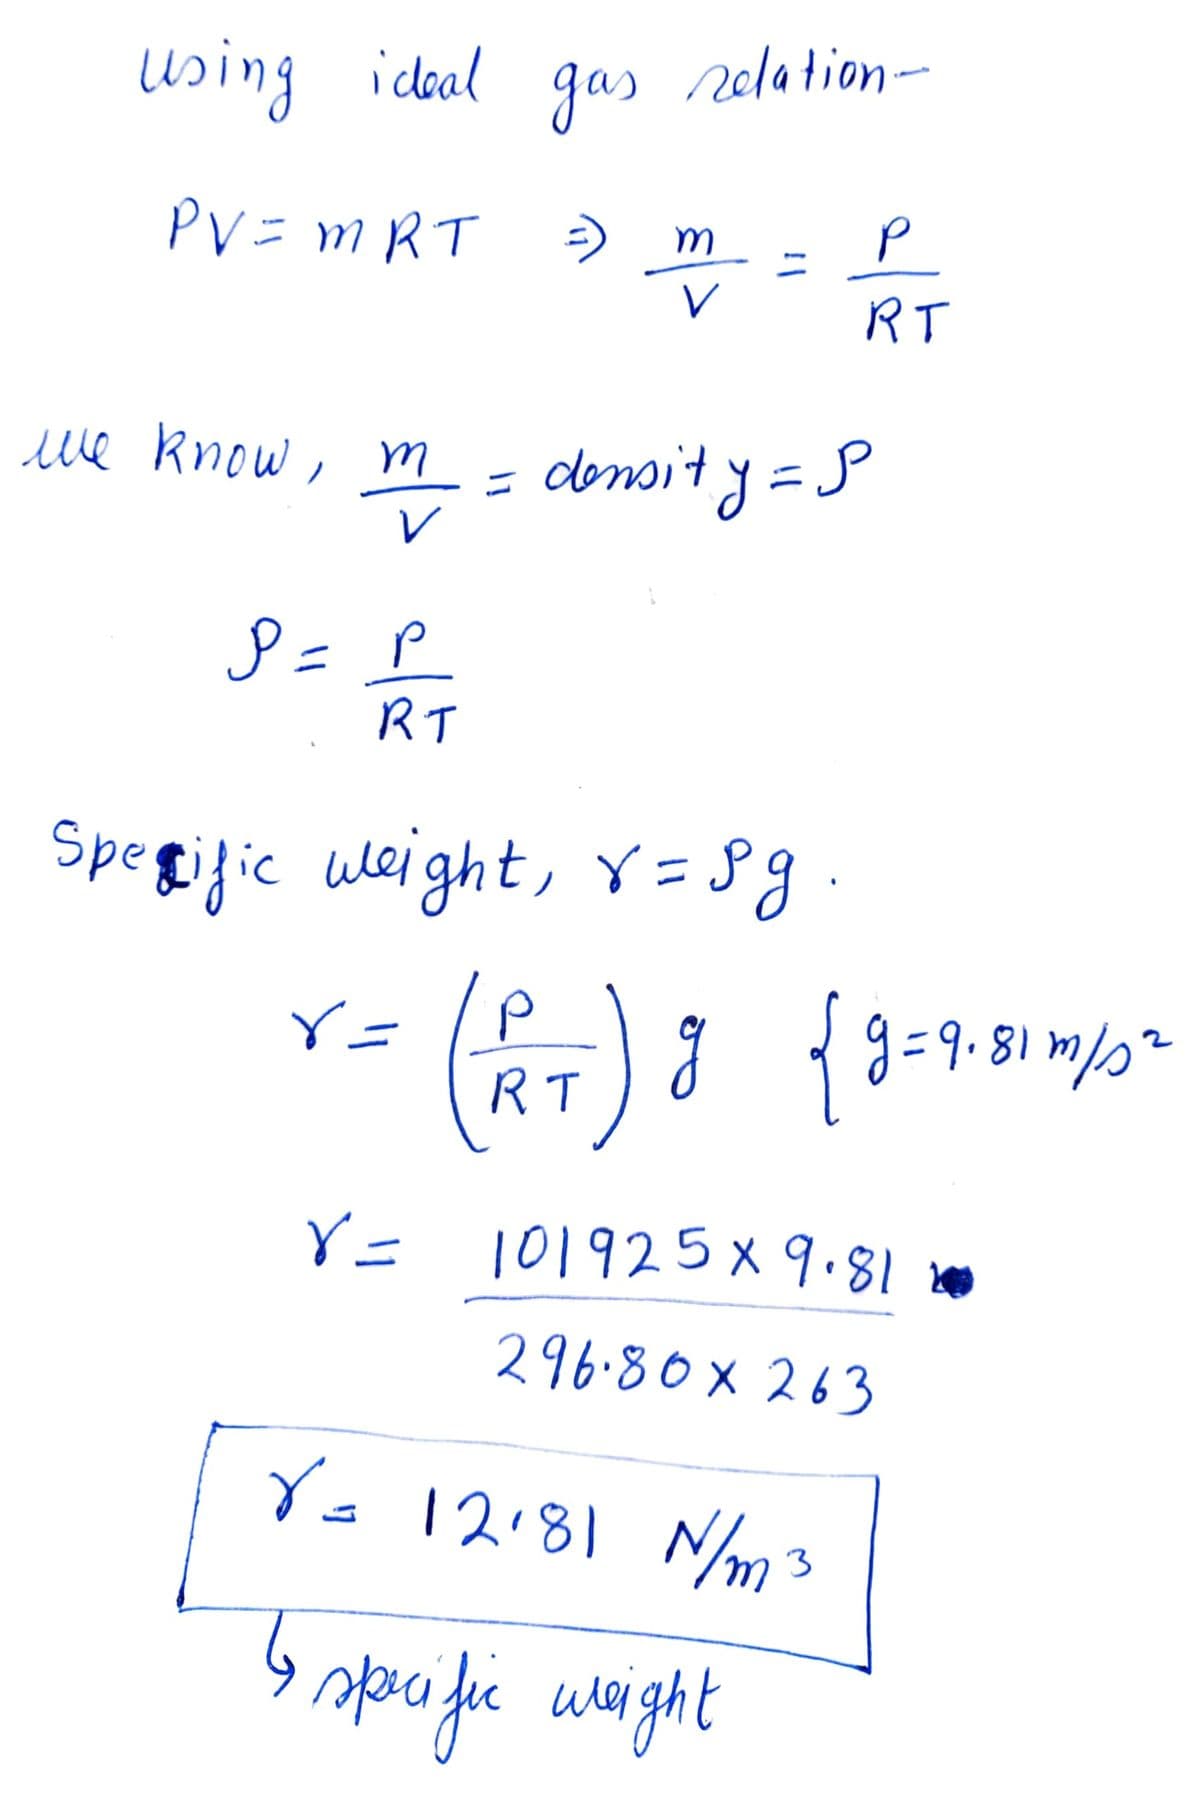 using ideal gas relation-
PV = mRT ⇒ m/V = P/RT
we know, m/V = density = ρ
ρ = P/RT
Specific weight, γ = ρg.
γ = (P/RT) g { g = 9.81 m/s²
γ = 101925 × 9.81 / 296.80 × 263
γ = 12.81 N/m³
↳ specific weight